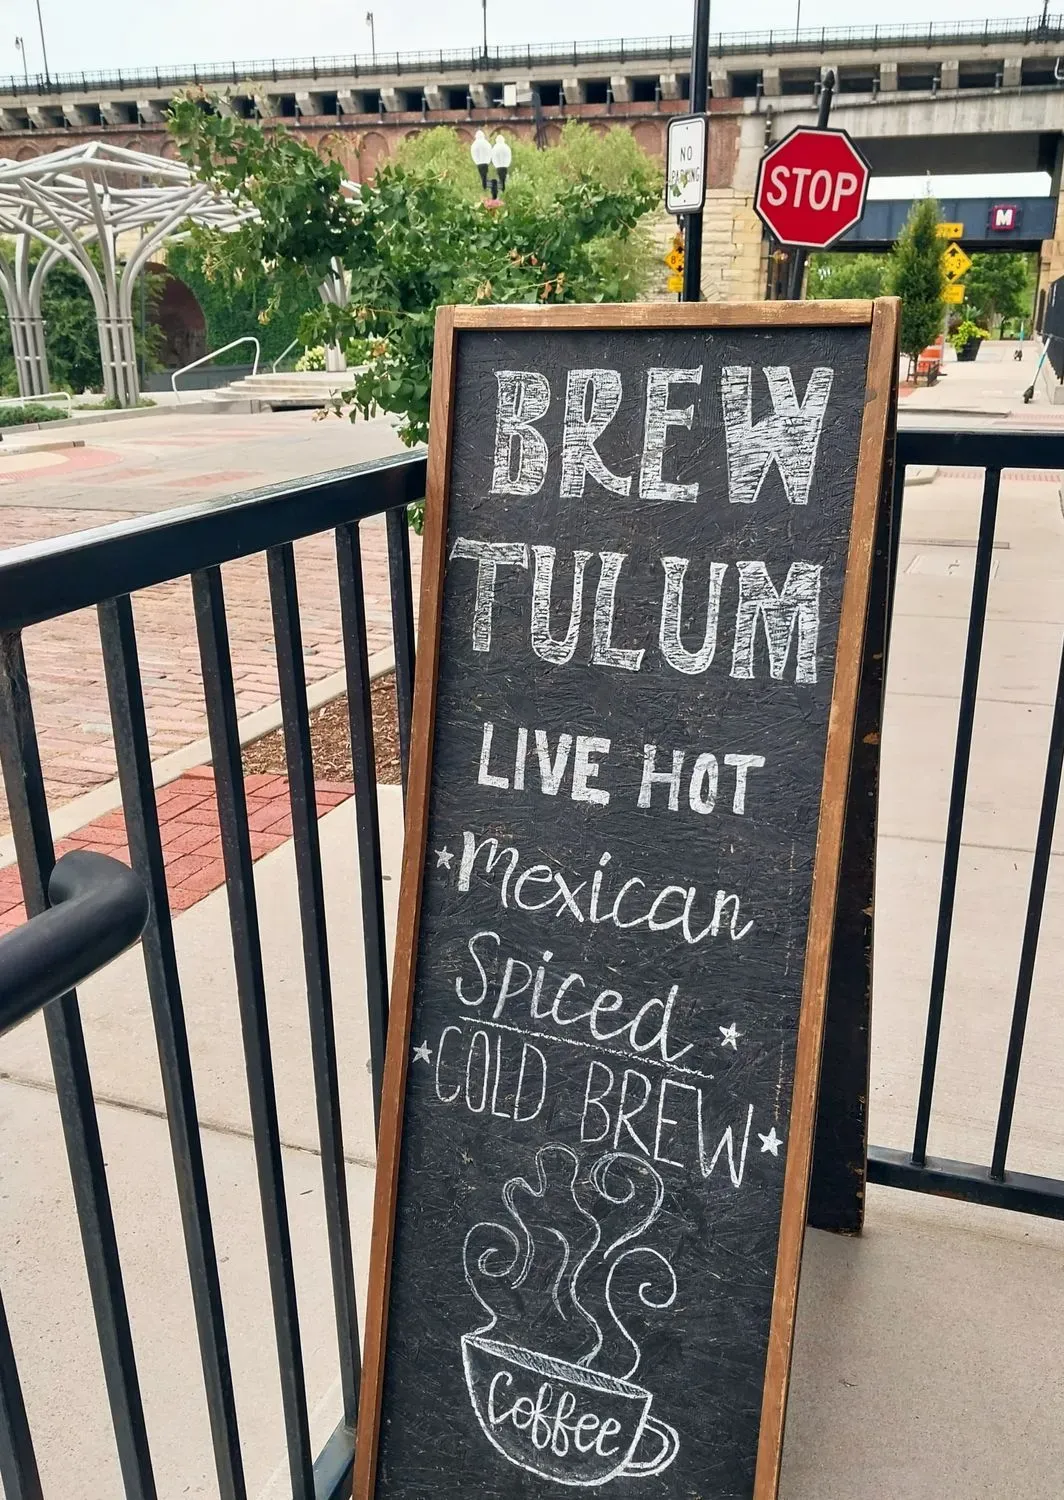 NO
PARKING
STOP
M
BREW
TULUM
LIVE HOT
Mexican
Spiced
COLD BREW
Coffee